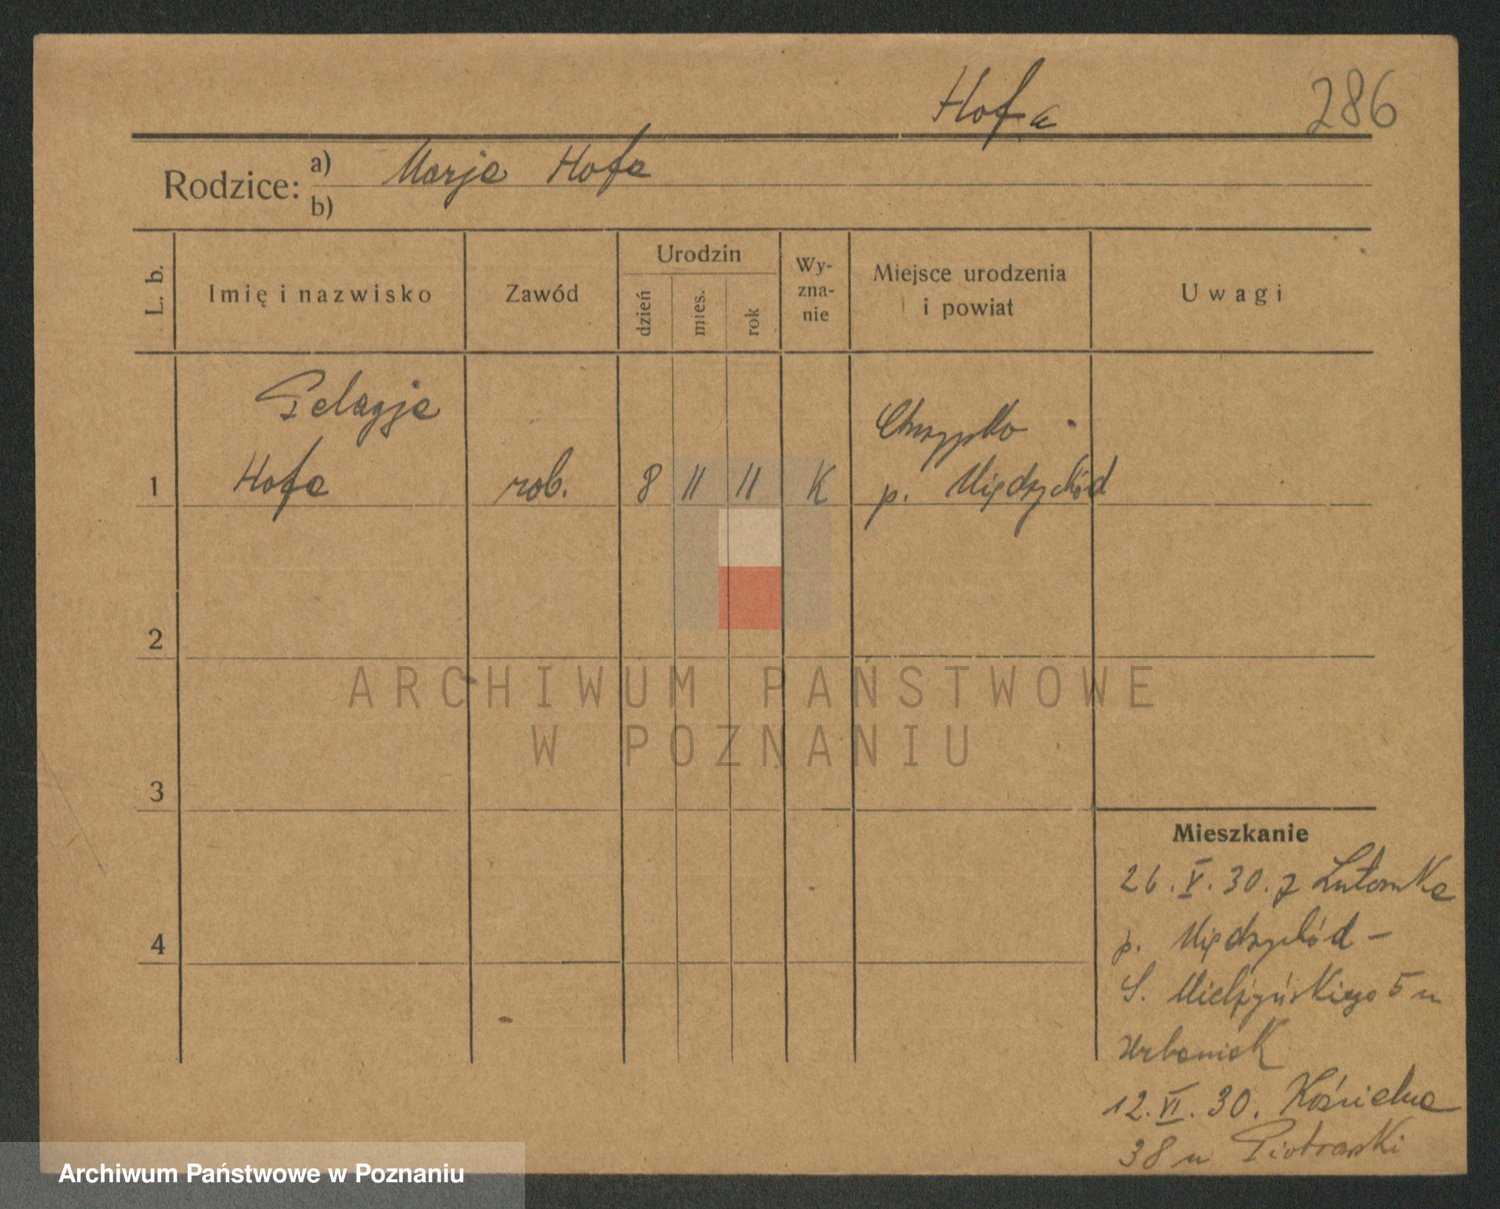 Hofa 286
Rodzice: a) Marja Hofa
b)
L. b. Imię i nazwisko Zawód Urodzin dzień mies. rok Wy-zna-nie Miejsce urodzenia i powiat Uwagi
Pelagja Chrzypsko
1 Hofa rob. 8 11 11 K p. Międzychód
2
ARCHIWUM PAŃSTWOWE
W POZNANIU
3
Mieszkanie
26.V.30. z Lutomka
4 p. Międzychód –
S. Mielżyńskiego 5 u
Urbaniak
12.VI.30. Kościelna
38 u Piotrowski
Archiwum Państwowe w Poznaniu